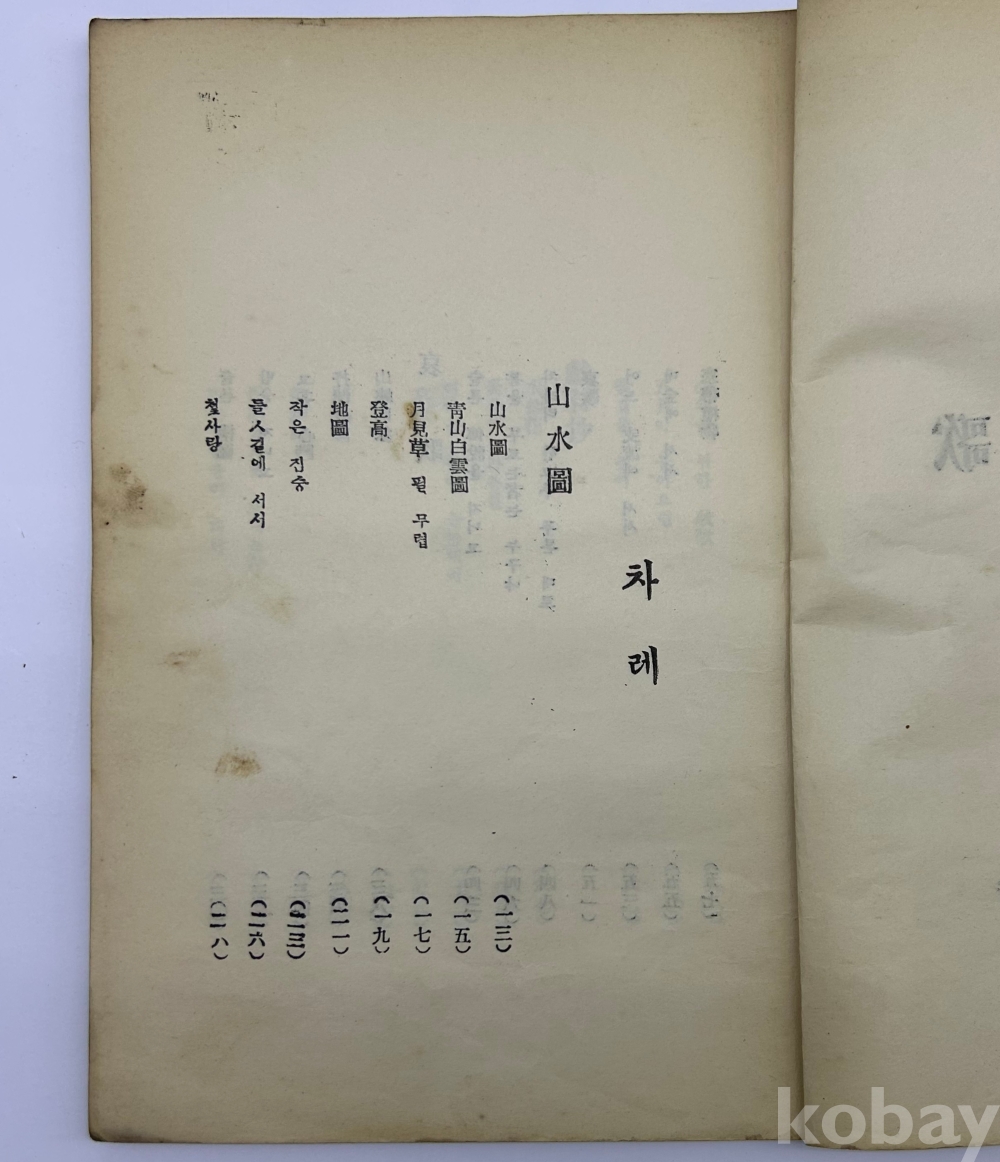 차례
山水圖
山水圖 (一三)
靑山白雲圖 (一五)
月見草 필 무렵 (一七)
登高 (一九)
地圖 (二一)
작은 짐승 (二三)
들ㅅ길에 서서 (二六)
첫사랑 (二八)
歌
kobay